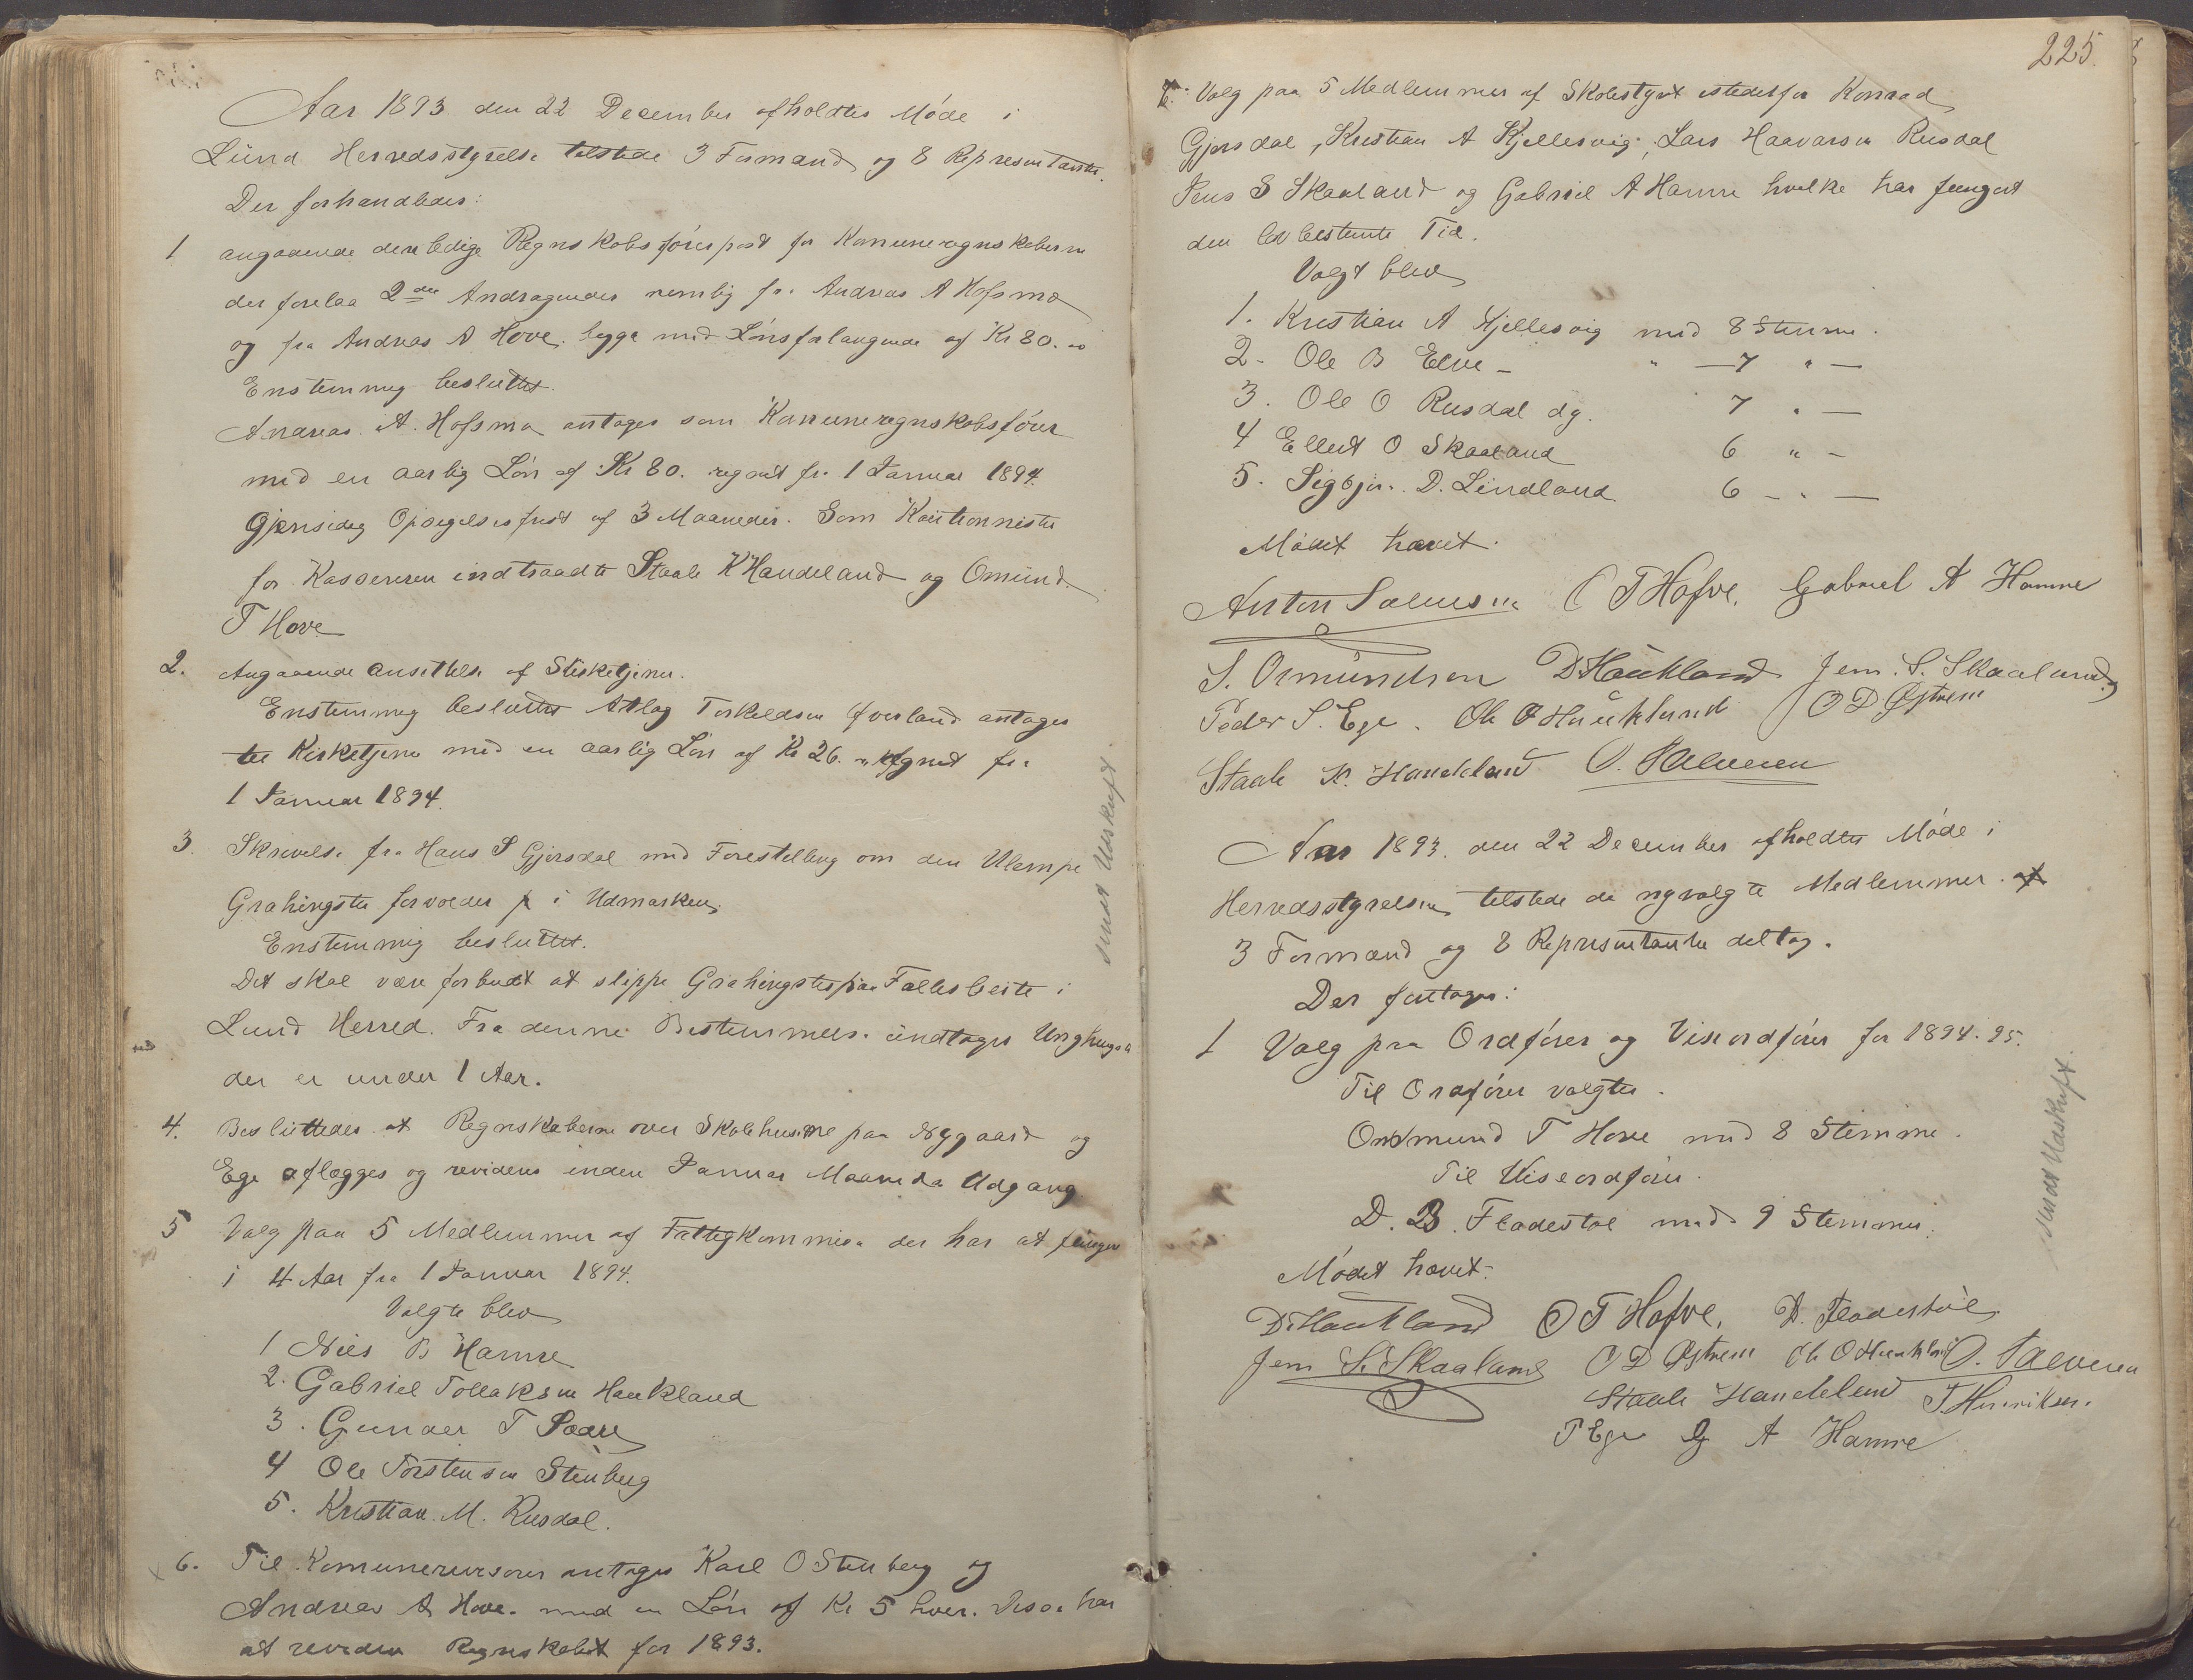 Aar 1893. den 22 December afholdtes Møde i
Lund Herredsstyrelse tilstede 3 Formænd og 8 Repræsentanter.
Der forhandledes:
1 angaaende den ledige Regnskabsførerpost for Kommuneregnskaberne
der forelaa 2de Andragender nemlig fra Andreas A Hofsmo
og fra Andreas A Hove. begge med Lønsforlangende af Kr 80.
Enstemmig besluttet.
Andreas. A. Hofsmo antages som Kommuneregnskabsfører
med en aarlig Løn af Kr 80. regnet fra 1 Januar 1894.
Gjensidig Opsigelsesfrist af 3 Maaneder. Som Kautionnister
for Kassereren indtraadte Staale K Handeland og Omund
T Hove
2. Angaaende Ansættelse af Kirketjener.
Enstemmig besluttet Atlag Torkeldsen Øverland antages
til Kirketjener med en aarlig Løn af Kr 26. regnet fra
1 Januar 1894.
3. Skrivelse fra Hans S Gjersdal med Forestilling om den Ulempe
Grahingster forvolder i Udmarken.
Enstemmig besluttet.
Det skal være forbudt at slippe Grahingster paa Fællesbeite i
Lund Herred. Fra denne Bestemmelse undtages Unghingste
der er under 1 Aar.
4. Besluttedes at Regnskaberne over Skolehusene paa Nygaard og
Ege aflægges og revideres inden Januar Maaneds Udgang
5 Valg paa 5 Medlemmer af Fattigkommisn der har at fungere
i 4 Aar fra 1 Januar 1894.
Valgte blev
1 Nils B Hamre
2. Gabriel Tollaksen Haukland
3. Gunder T
4 Ole Torstensen Stenberg
5. Kristian. M. Rusdal.
6. Til Komunerevisorer antages Karl O Stenberg og
Andreas A Hove. med en Løn af Kr 5 hver. Disse har
at revidere Regnskabet for 1893.
sendt Udskrift
225.
7. Valg paa 5 Medlemmer af Skolestyret istedetfor Konrad
Gjersdal, Kristian A Kjellesvig, Lars Haavarsen Rusdal
Jens S Skaaland og Gabriel A Hamre hvilke har fungert
den lovbestemte Tid.
Valgt blev
1. Kristian A Kjellesvig med 8 Stemme.
2- Ole B Eelve - " — 7 " —
3. Ole O Rusdal dg. 7 " —
4 Ellert O Skaaland 6 " -
5. Sigbjør. D. Lindland 6 - " —
Mødet hævet.
Anton Salvesen O T Hofve. Gabriel A Hamre
S. Osmundsen D Haukland Jens. S. Skaaland
Peder S. Ege. Ole O Haukland O D Østrem
Staale K. Handeland O. Salvesen
Aar 1893. den 22 December afholdtes Møde i
Herredsstyrelsen tilstede de nyvalgte Medlemmer.
3 Formænd og 8 Repræsentanter deltog.
Der foretoges:
1 Valg paa Ordfører og Viseordfører for 1894. 95.
Til Ordfører valgtes.
Ommund T Hove med 8 Stemme.
Til Viseordfører.
D. B. Fladestøl med 9 Stemmer.
Mødet hævet.
D Haukland O T Hofve. D. Fladestøl
Jens S. Skaaland O D Østrem Ole O Haukland O. Salvesen
Staale Handeland T. Henriksen.
P Ege G A Hamre
sendt Udskrift.